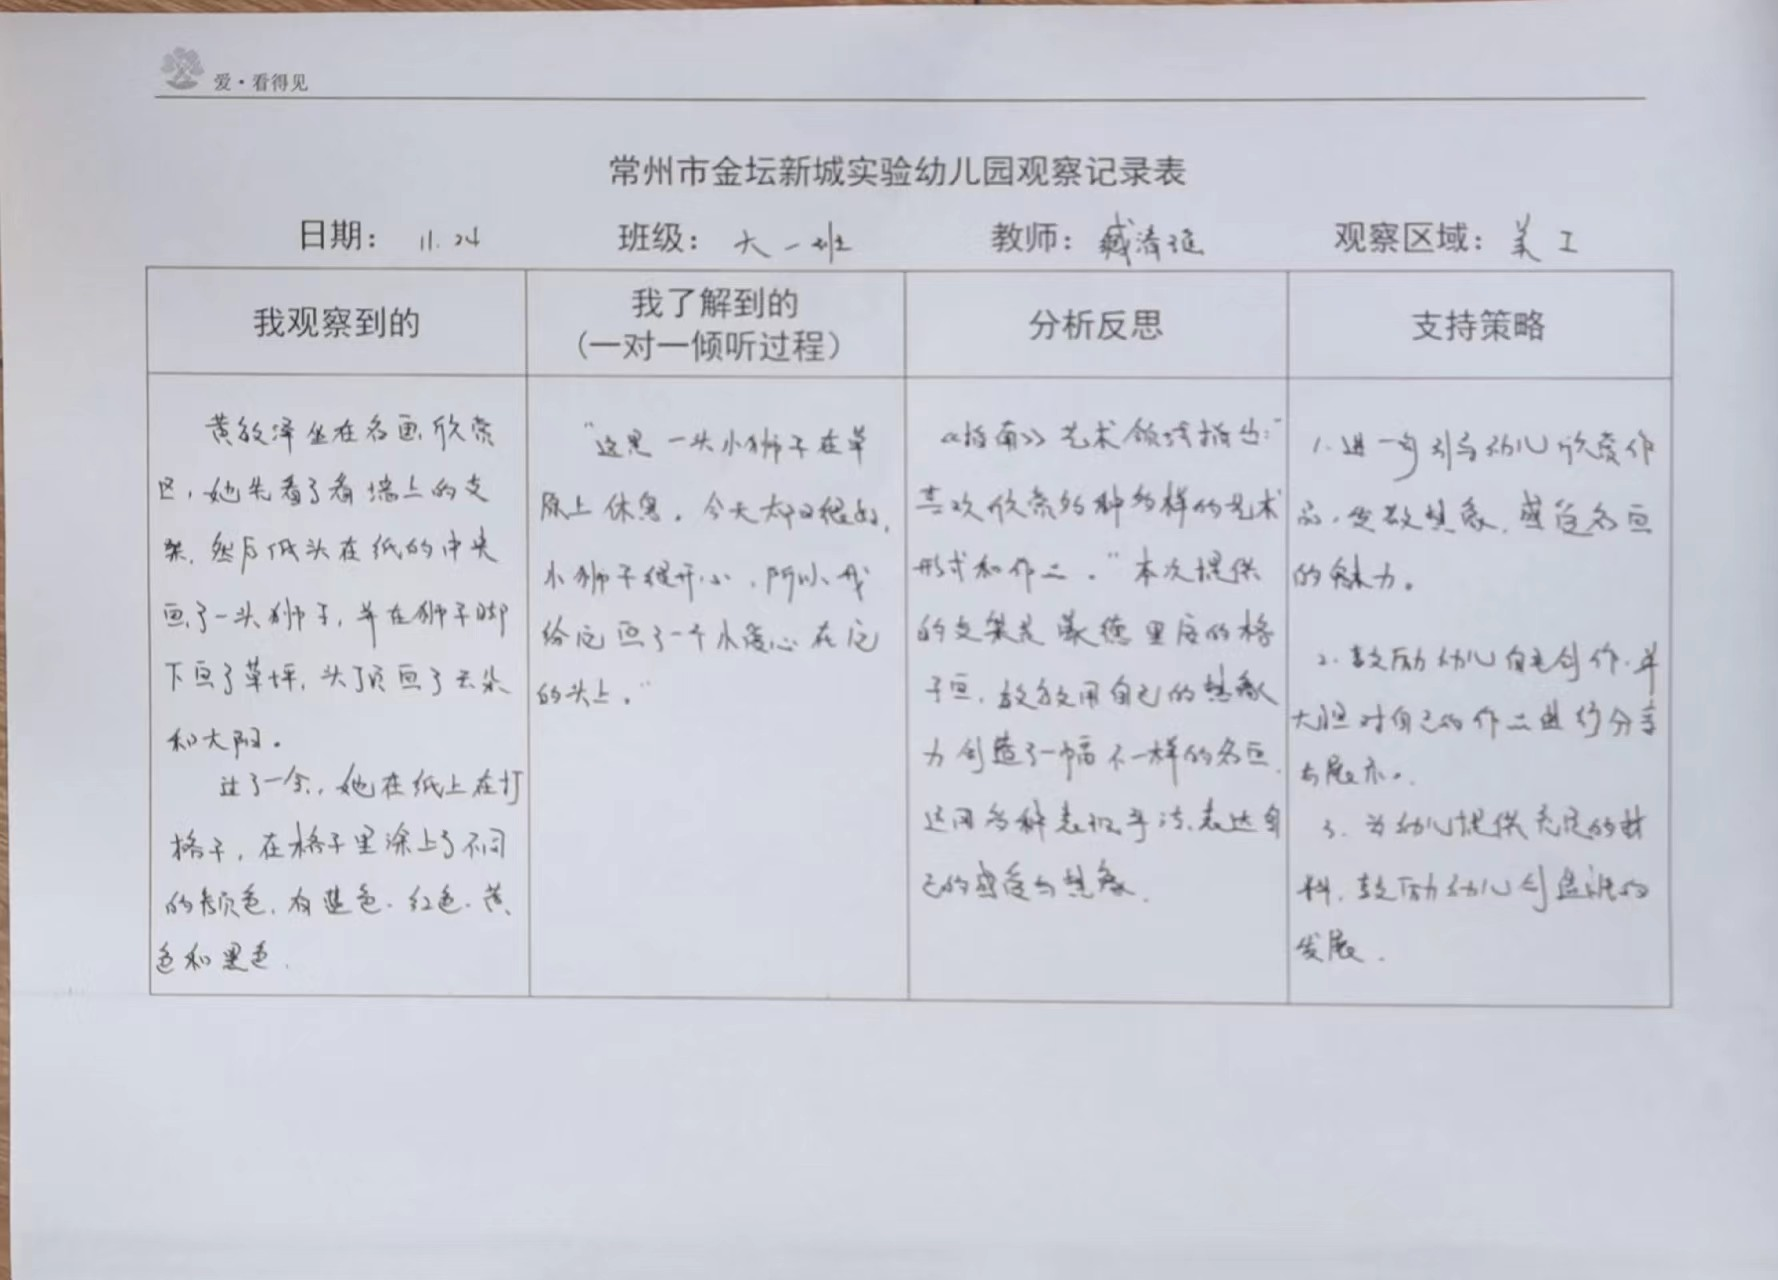 爱·看得见
常州市金坛新城实验幼儿园观察记录表
日期： 11.24 班级： 大一班 教师： 臧清 观察区域： 美工
我观察到的
我了解到的
（一对一倾听过程）
分析反思
支持策略
黄敉泽坐在名画欣赏
区，她先看了看墙上的支
架，然后低头在纸的中央
画了一头狮子，并在狮子脚
下画了草坪，头顶画了云朵
和太阳。
过了一会，她在纸上在打
格子，在格子里涂上了不同
的颜色，有蓝色、红色、黄
色和黑色.
“这是一头小狮子在草
原上休息，今天太阳很好，
小狮子很开心，所以我
给它画了一个小爱心在它
的头上。”
《指南》艺术领域指出：“
喜欢欣赏多种多样的艺术
形式和作品。”本次提供
的支架是蒙德里安的格
子画，敉敉用自己的想象
力创造了一幅不一样的名画，
运用多种表现手法，表达自
己的感受与想象.
1.进一步引导幼儿欣赏作
品，发散想象，感受名画
的魅力。
2.鼓励幼儿自主创作，并
大胆对自己的作品进行分享
与展示。
3.为幼儿提供充足的材
料，鼓励幼儿创造性的
发展.